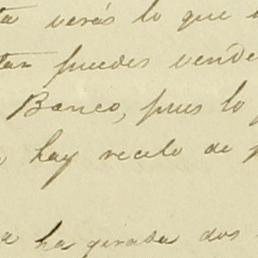 ta verás lo que
tan puedes vende
Banco, pues lo
hay recelo de
ha girado dos